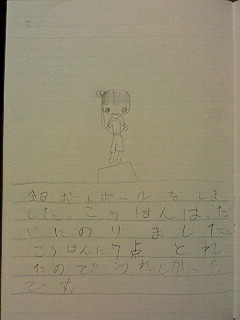 今日 ポートボール をしま
した。こうはんは、だ
いにのり ました。
こうはんに7点 とれ
たのでうれしかった
です。